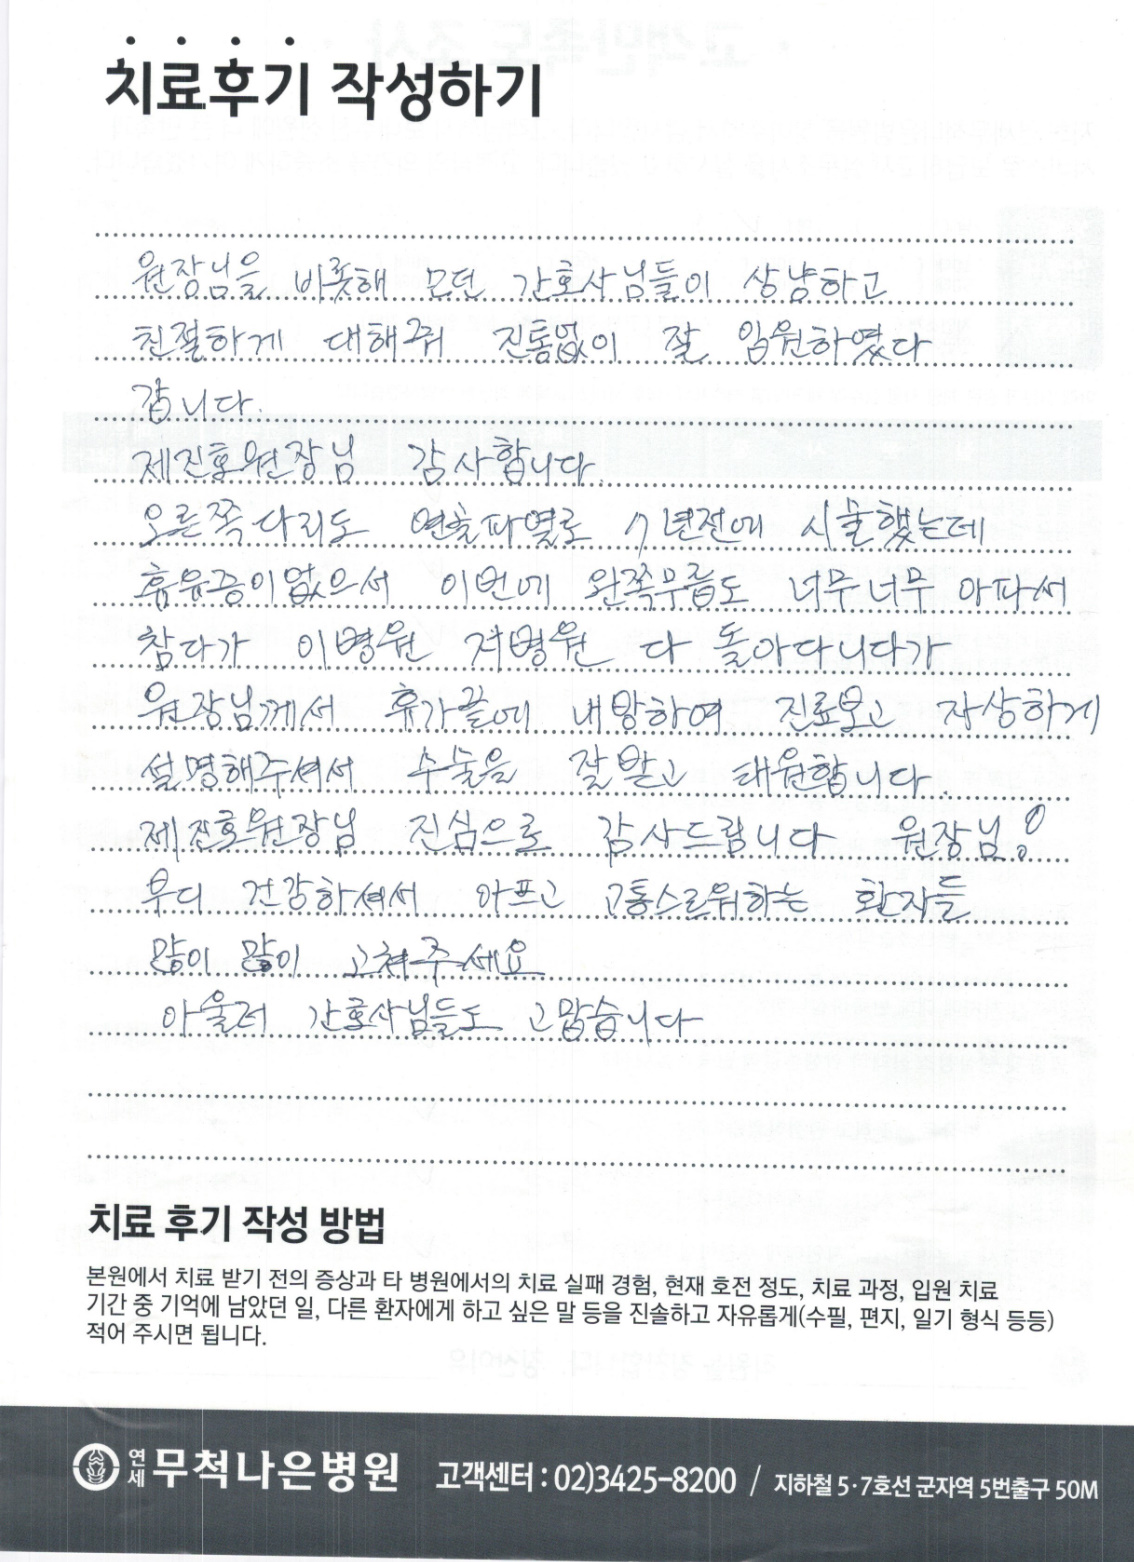 치료후기 작성하기
원장님을 비롯해 모던 간호사님들이 상냥하고
친절하게 대해줘 진통없이 잘 입원하였다
갑니다.
제진호원장님 감사합니다.
오른쪽다리도 연출파열로 7년전에 시술했는데
휴유증이없으서 이번에 왼쪽무릅도 너무너무 아파서
참다가 이병원 저병원 다 돌아다니다가
원장님께서 휴가끝에 내방하여 진료보고 자상하게
설명해주셔서 수술을 잘받고 태원합니다.
제진호원장님 진심으로 감사드립니다 원장님!
부디 건강하셔서 아프고 고통스르워하는 환자들
많이 많이 고쳐주세요
아울러 간호사님들도 고맙습니다
치료 후기 작성 방법
본원에서 치료 받기 전의 증상과 타 병원에서의 치료 실패 경험, 현재 호전 정도, 치료 과정, 입원 치료
기간 중 기억에 남았던 일, 다른 환자에게 하고 싶은 말 등을 진솔하고 자유롭게(수필, 편지, 일기 형식 등등)
적어 주시면 됩니다.
연세 무척나은병원 고객센터 : 02)3425-8200 / 지하철 5·7호선 군자역 5번출구 50M